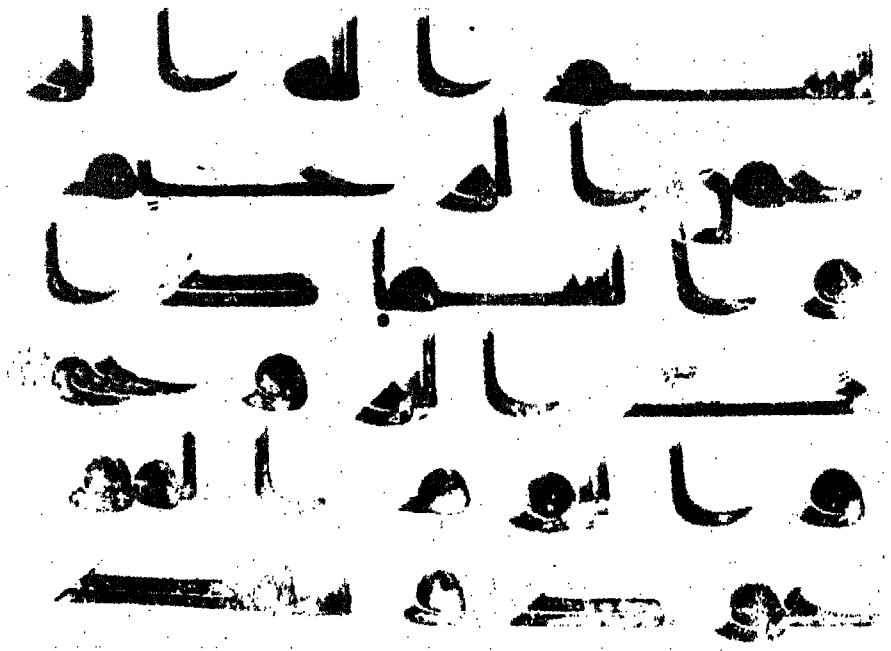 سم الله الر
حمن الرحيم
والسما ذا
ت البروج
واليوم المو
عود وشهد